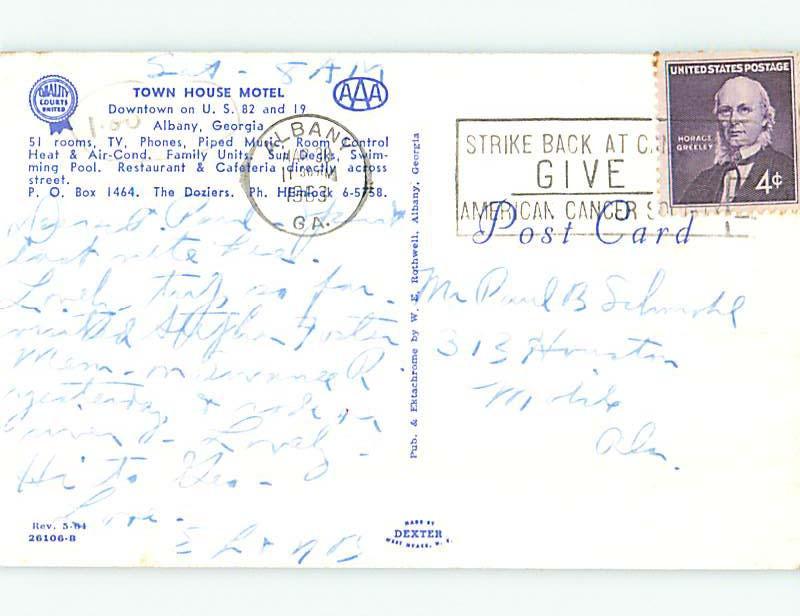 Sat - 8 AM
QUALITY
COURTS
UNITED
TOWN HOUSE MOTEL
AAA
Downtown on U. S. 82 and 19
Albany, Georgia
1.00
51 rooms, TV, Phones, Piped Music, Room Control
Heat & Air-Cond. Family Units, Sun Decks, Swim-
ming Pool. Restaurant & Cafeteria directly across
street.
P. O. Box 1464. The Doziers. Ph. HEmlock 6-5758.
ALBANY
GA.
STRIKE BACK AT
GIVE
AMERICAN CANCER
UNITED STATES POSTAGE
HORACE
GREELEY
4¢
Post Card
Paul
last nite
Lovely trip, so far.
visited Stephen Foster
Mem. Suwannee R
yesterday &
Lovely.
Hi to Geo.
Love.
Mr Paul B
313 Houston
Mobile
Ala.
Pub. & Ektachrome by W. E. Rothwell, Albany, Georgia
Rev. 5-84
26106-B
MADE BY
DEXTER
WEST NYACK, N. Y.